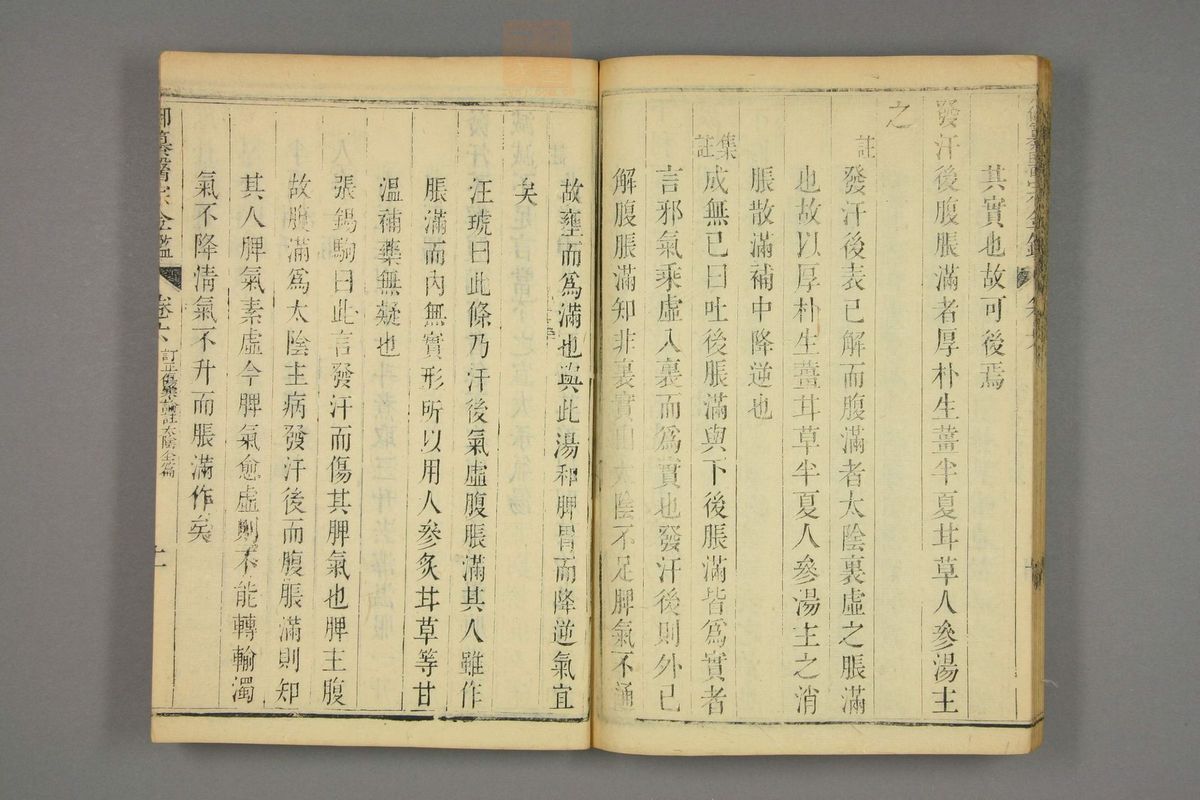 其實也故可後焉
發汗後腹脹滿者厚朴生薑半夏甘草人參湯主
之
註
發汗後表已解而腹滿者太陰裏虛之脹滿
也故以厚朴生薑甘草半夏人參湯主之消
脹散滿補中降逆也
集註
成無已曰吐後脹滿與下後脹滿皆爲實者
言邪氣乘虛入裏而爲實也發汗後則外已
解腹脹滿知非裏實由太陰不足脾氣不通
故壅而爲滿也與此湯和脾胃而降逆氣宜
矣
汪琥曰此條乃汗後氣虛腹脹滿其人雖作
脹滿而內無實形所以用人參炙甘草等甘
溫補藥無疑也
張錫駒曰此言發汗而傷其脾氣也脾主腹
故腹滿爲太陰主病發汗後而腹脹滿則知
其人脾氣素虛今脾氣愈虛則不能轉輸濁
氣不降淸氣不升而脹滿作矣
御纂醫宗金鑑
卷六
訂正傷寒論註太陰全篇